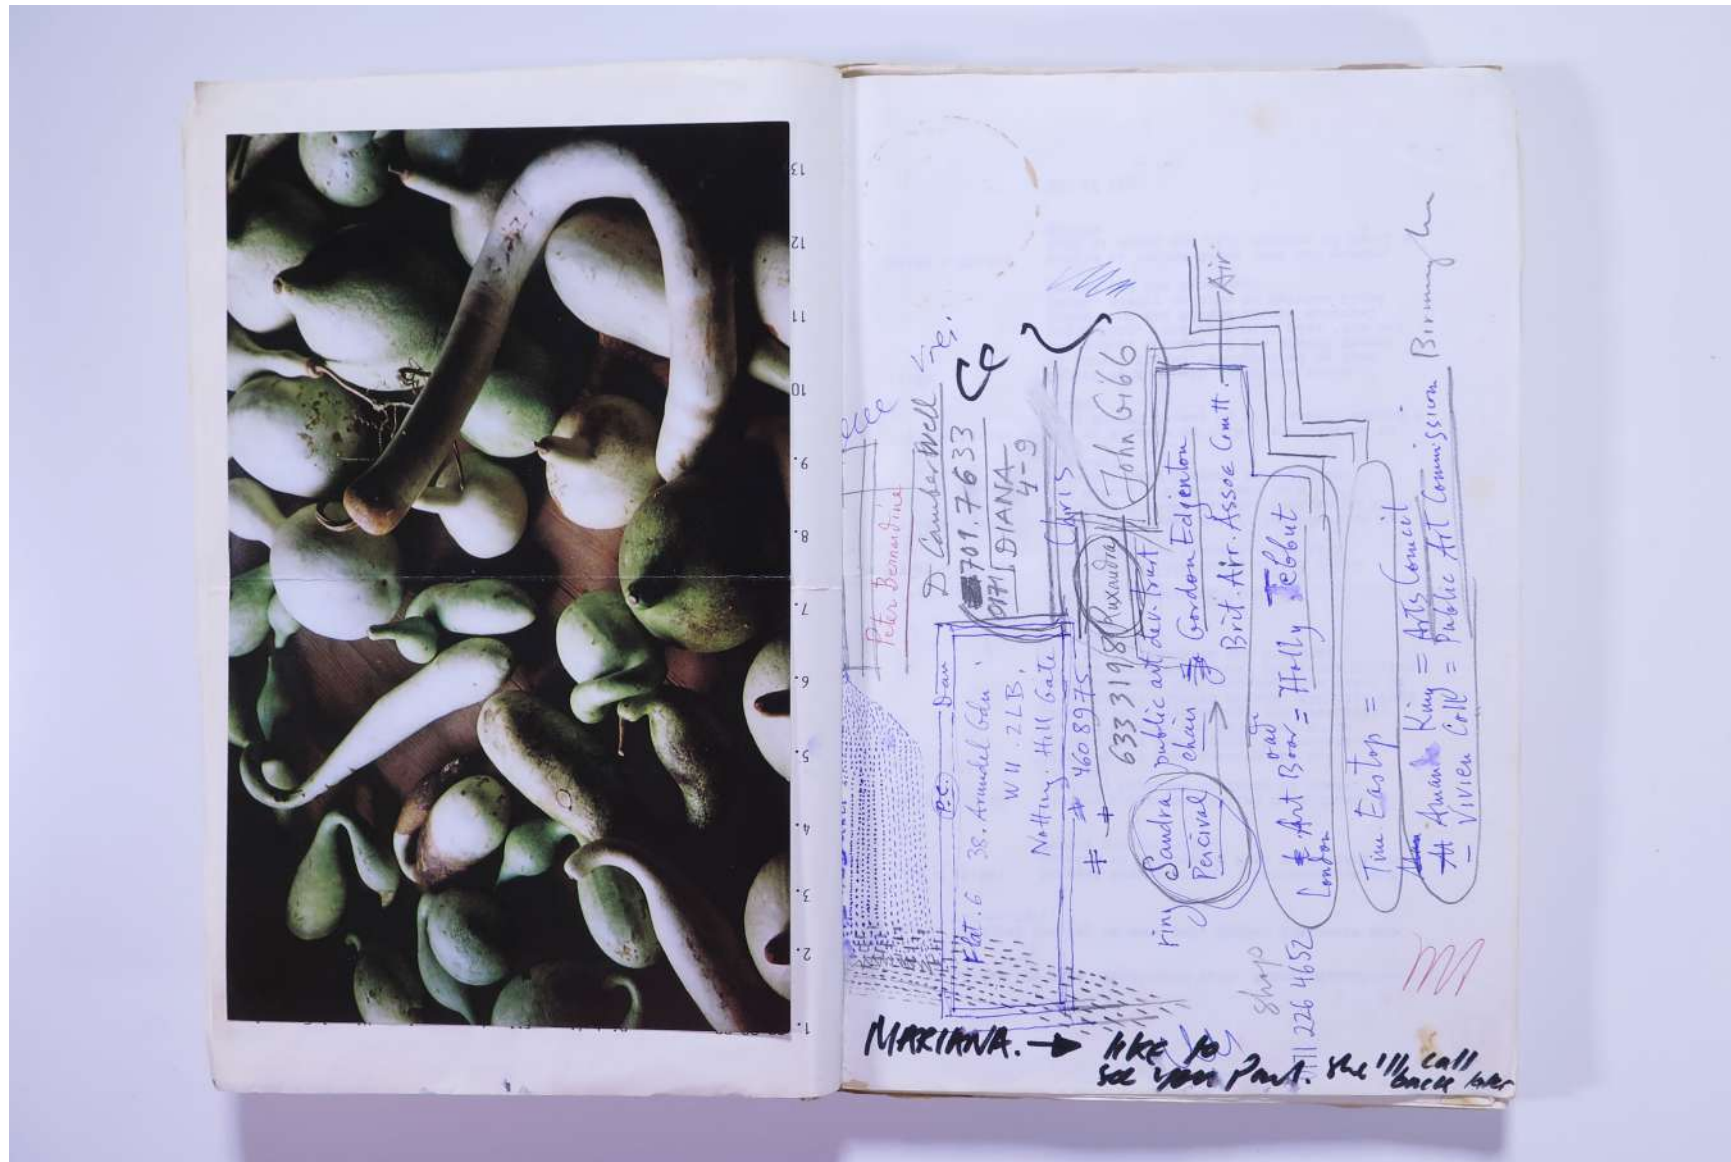 13
12
11
10
9.
8.
7.
6.
5.
4.
3.
2.
1.
Peter Bernardine
D Camberwell
709.7633
0171
DIANA
4-9
CC
P.C. Dan
Flat.6 38. Arundel Gdn.
W11.2LB.
Notting Hill Gate
Chris
# 4608975
# 6333198 Ruxandra
John Gibb
ring Sandra Percival
public art dev. trust
chair Gordon Edgington
→ Brit. Air. Assoc Comtt. Air
London Art Board = Holly Tebbut
shop
171 226 4652
Tim Eastop =
Amanda King = Arts Council
- Vivien Coll = Public Art Commission Birmingham
MARIANA. → like to
see you Paul. she'll call
back later